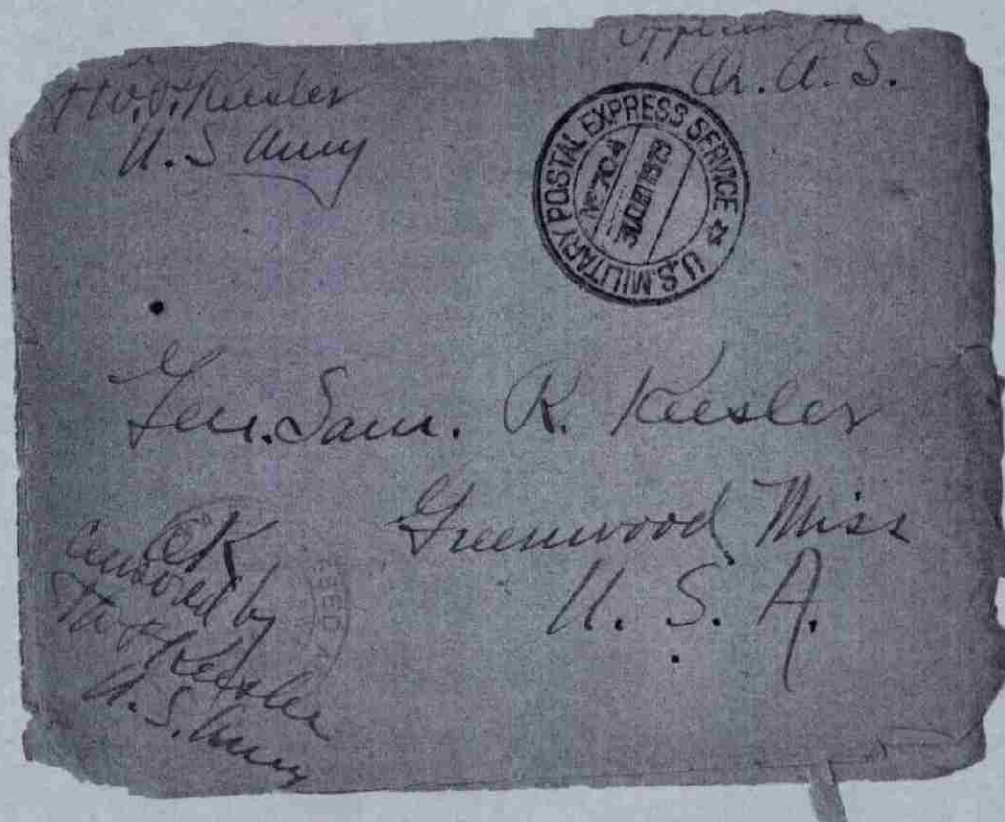 Keesler
U.S Army
A. S.
U.S. MILITARY POSTAL EXPRESS SERVICE
No 704
Gen. Sam. R. Keesler
Greenwood Miss
U. S. A.
OK
Censored by
Keesler
U.S. Army